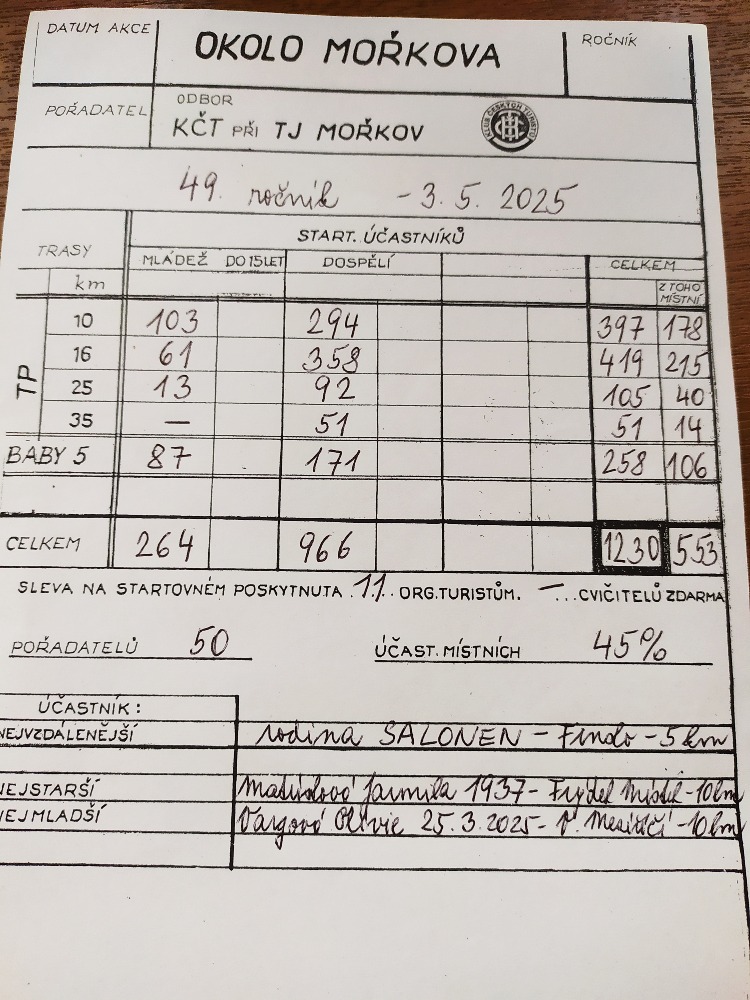 DATUM AKCE OKOLO MOŘKOVA ROČNÍK
POŘADATEL ODBOR
KČT PŘI TJ MOŘKOV
KLUB ČESKÝCH TURISTŮ
49. ročník - 3. 5. 2025
TRASY START. ÚČASTNÍKŮ
MLÁDEŽ DO 15LET DOSPĚLÍ CELKEM
km Z TOHO MÍSTNÍ
TP
10 103 294 397 178
16 61 358 419 215
25 13 92 105 40
35 — 51 51 14
BABY 5 87 171 258 106
CELKEM 264 966 1230 553
SLEVA NA STARTOVNÉM POSKYTNUTA .11.. ORG.TURISTŮM. —...CVIČITELŮ ZDARMA
POŘADATELŮ 50 ÚČAST. MÍSTNÍCH 45%
ÚČASTNÍK:
NEJVZDÁLENĚJŠÍ rodina SALONEN - - 5 km
NEJSTARŠÍ Jarmila 1937 - Frýdek Místek - 10 km
NEJMLADŠÍ Vargová Olivie 25.3.2025 - V. Meziříčí - 10 km